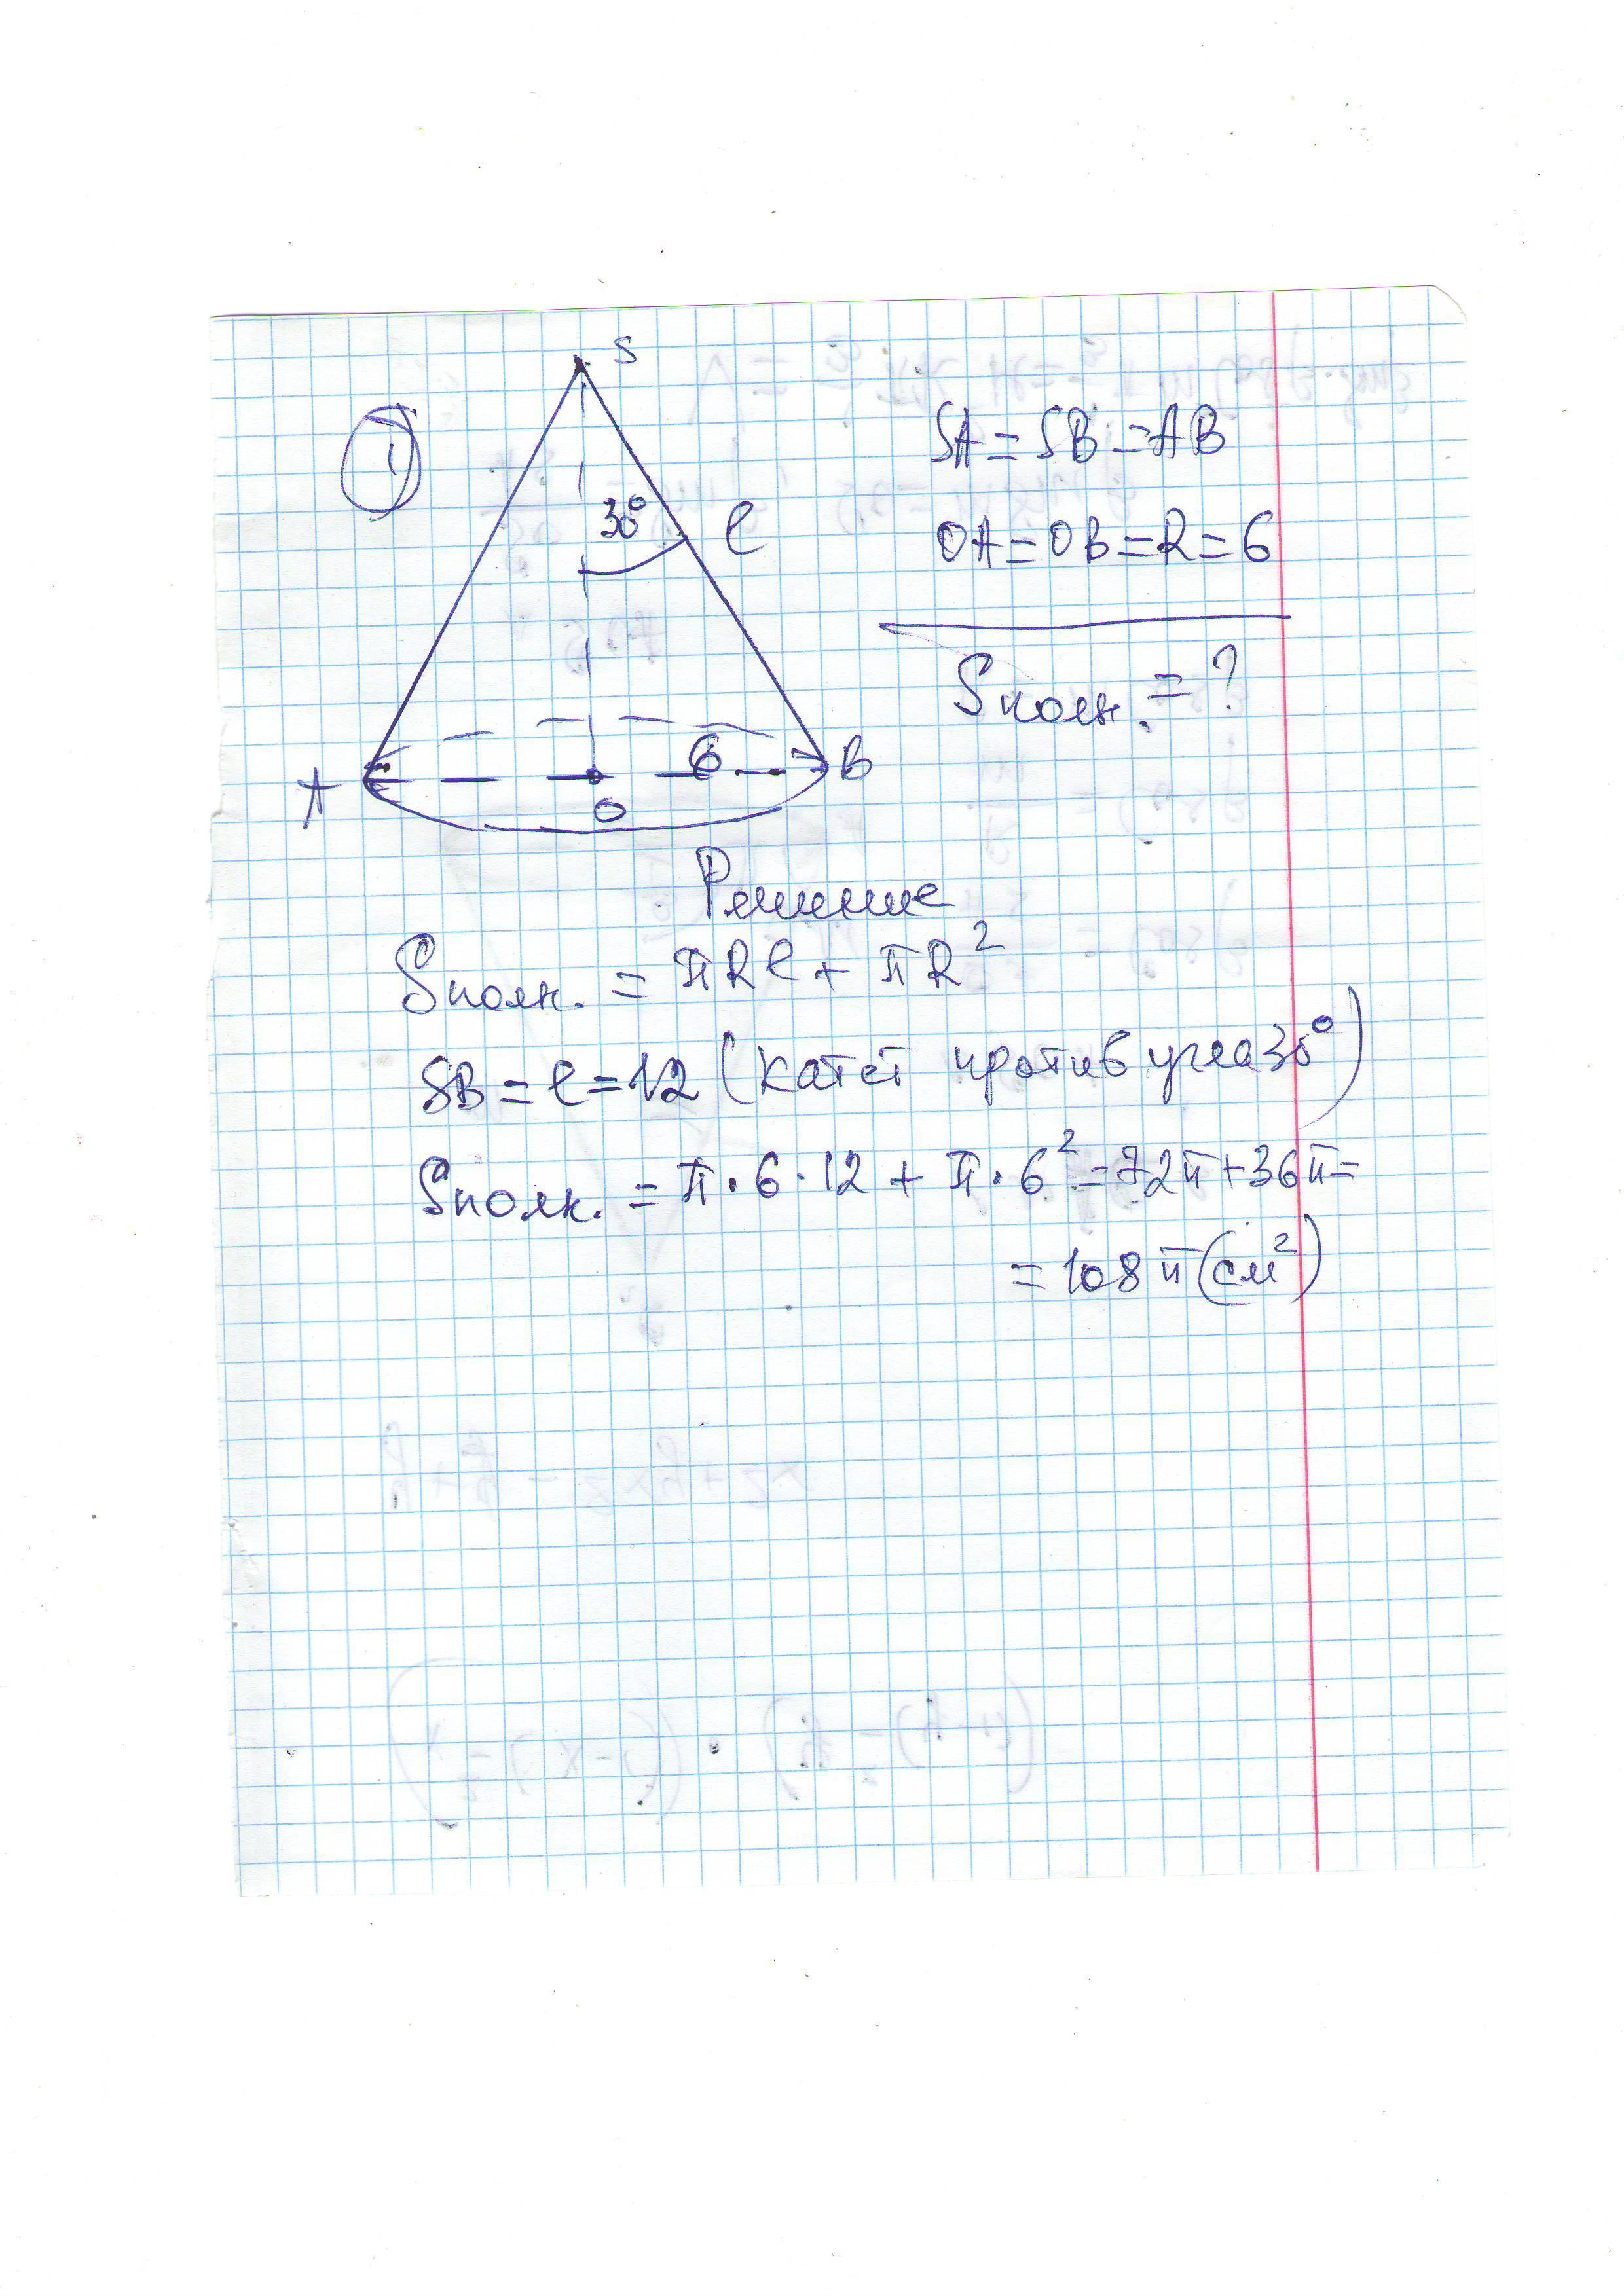 1
S
30°
l
6
A
O
B
SA = SB = AB
OA = OB = R = 6
Sполн. = ?
Решение
Sполн. = πRl + πR²
SB = l = 12 (катет против угла 30°)
Sполн. = π·6·12 + π·6² = 72π + 36π =
= 108π (см²)